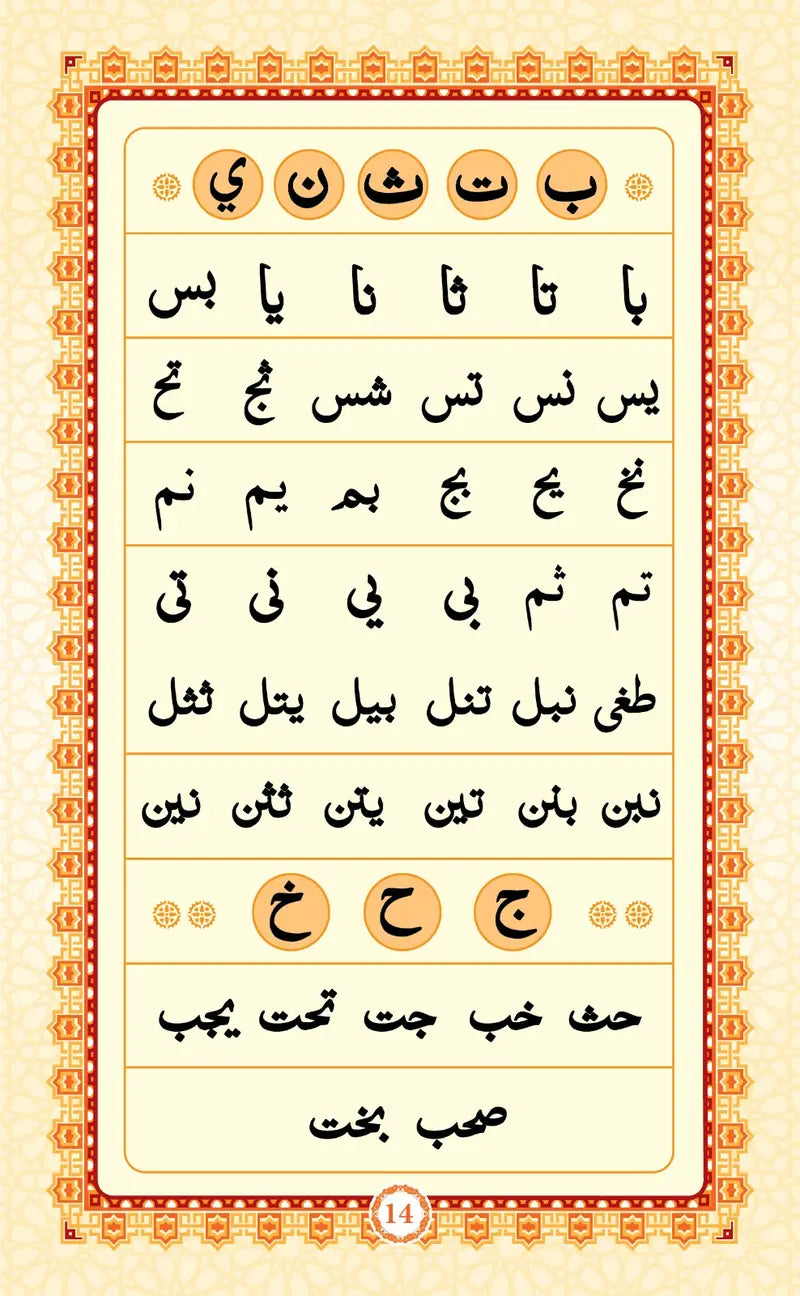 ب ت ث ن ي
با تا ثا نا يا بس
يس نس تس شس ثج تح
نخ يح بج بم يم نم
تم ثم بي يي ني تي
طغى نبل تنل بيل يتل ثثل
نبن بنن تين يتن ثثن نين
ج ح خ
حث خب جت تحت يجب
صحب بخت
14